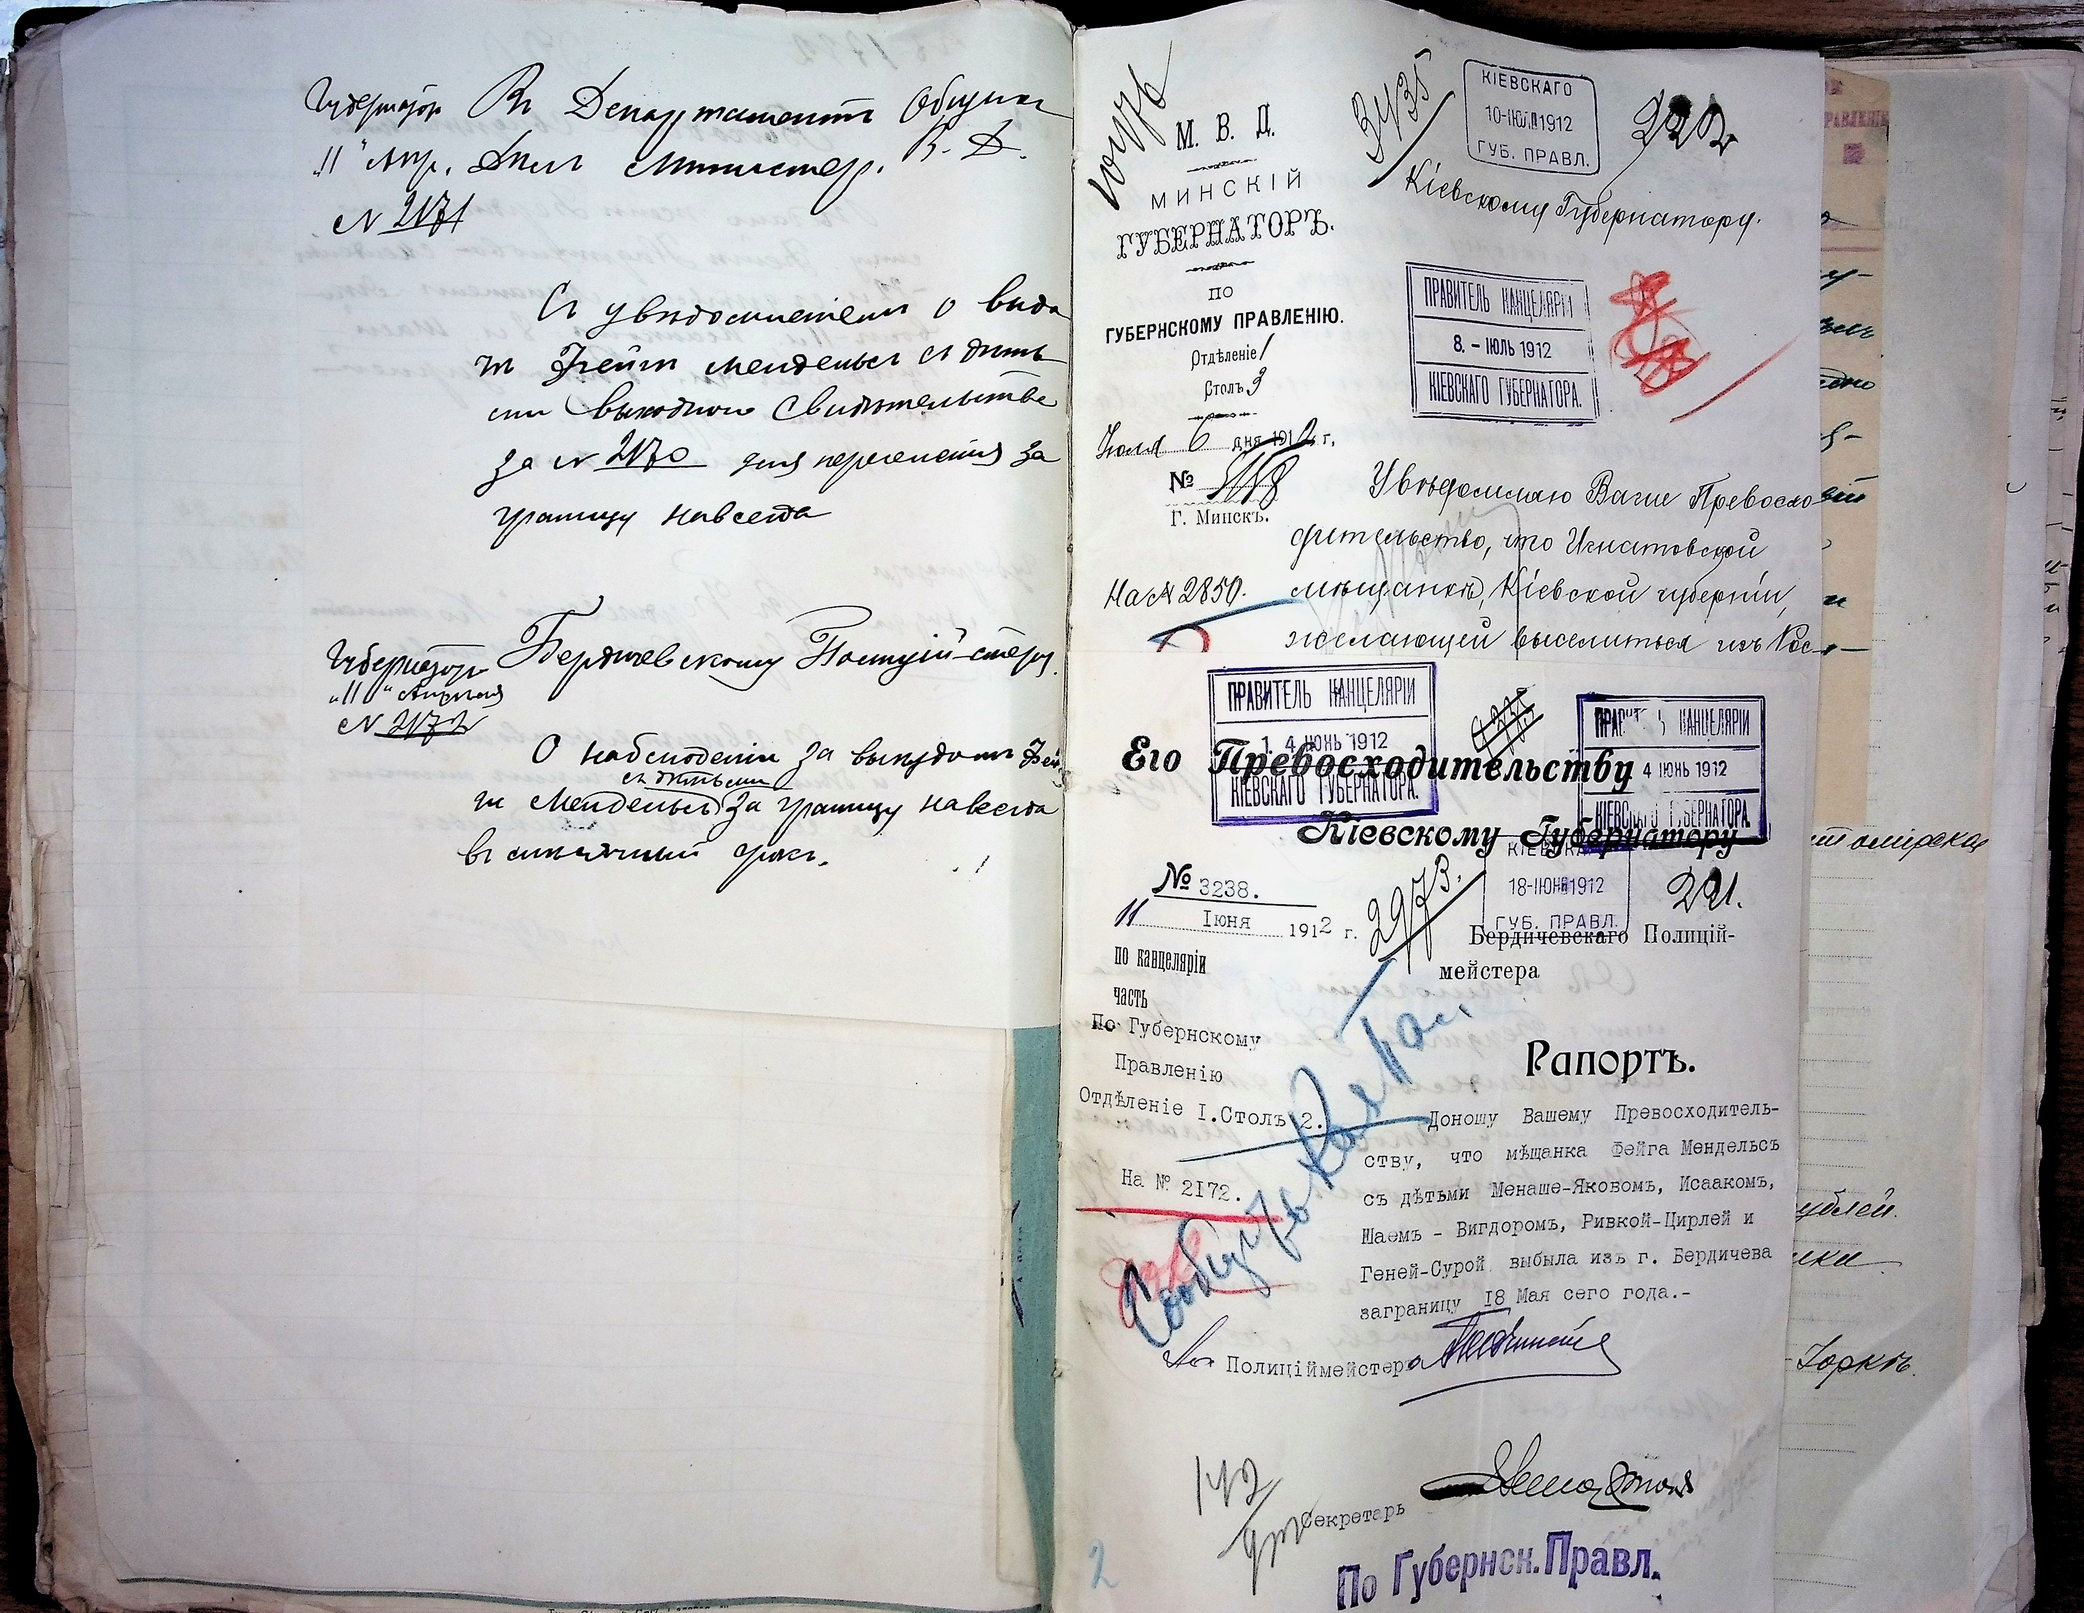 Губернаторъ Въ Департаментъ Общихъ
"11" Апр. Дѣлъ Министер. В. Д.
№ 2171
Съ увѣдомленіемъ о выда
чѣ Фейгѣ Мендельсъ съ дѣть
ми выходного свидѣтельства
за № 2170 для переселенія за
границу навсегда
Губернаторъ Бердичевскому Полиційместеру.
"11" Апрѣля
№ 2172
О наблюденіи за выѣздомъ Фей
съ дѣтьми
ги Мендельсъ за границу навсегда
въ мѣсячный срокъ.
М. В. Д.
МИНСКІЙ
ГУБЕРНАТОРЪ.
ПО
ГУБЕРНСКОМУ ПРАВЛЕНІЮ.
Отдѣленіе 1
Столъ 3
Іюля 6 дня 1912 г.
№
Г. Минскъ.
На № 2850.
3435
КІЕВСКАГО
10-ІЮЛ 1912
ГУБ. ПРАВЛ.
222
Кіевскому Губернатору.
ПРАВИТЕЛЬ КАНЦЕЛЯРІИ
8.-ІЮЛЬ 1912
КІЕВСКАГО ГУБЕРНАТОРА.
Увѣдомляю Ваше Превосхо
дительство, что Игнатовской
мѣщанкѣ, Кіевской губерніи,
желающей выселиться изъ Рос-
ПРАВИТЕЛЬ КАНЦЕЛЯРІИ
1.4 ІЮНЬ 1912
КІЕВСКАГО ГУБЕРНАТОРА.
ПРАВИТ Ь КАНЦЕЛЯРІИ
4 ІЮНЬ 1912
КІЕВСКАГО ГУБЕРНАТОРА.
Его Превосходительству
Кіевскому Губернатору
КІЕВСКАГО
18-ІЮН 1912
ГУБ. ПРАВЛ.
№ 3238.
11 Іюня 1912 г.
2973.
221.
по канцеляріи
часть
По Губернскому
Правленію
Отдѣленіе I.Столъ 2.
На № 2172.
Бердичевскаго Полицій-
мейстера
Рапортъ.
Доношу Вашему Превосходитель-
ству, что мѣщанка Фейга Мендельсъ
съ дѣтьми Менаше-Яковомъ, Исаакомъ,
Шаемъ - Вигдоромъ, Ривкой-Цирлей и
Геней-Сурой выбыла изъ г. Бердичева
заграницу 18 Мая сего года.-
Полиціймейстера
142
Секретарь
По Губернск.Правл.
2
ублей.
Іоркъ.